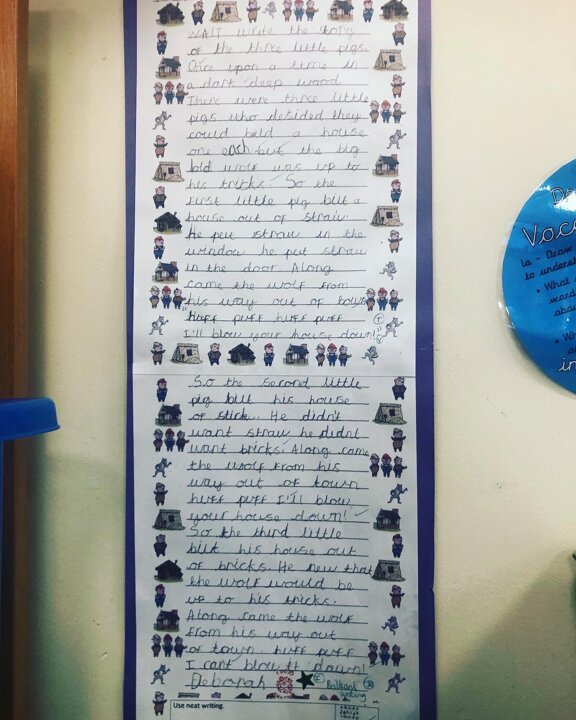 WALT write the story
of the three little pigs.
Once upon a time in
a dark deep wood
There were three little
pigs who desided they
could beld a house
one each but the big
bad wolf was up to
his tricks. So the
first little pig bilt a
house out of straw
he put straw in the
window he put straw
in the door. Along
came the wolf from
his way out of town
huff puff huff puff
I'll blow your house down!
So the second little
pig bilt his house
of stick. He didn't
want straw he didnt
want bricks. Along came
the wolf from his
way out of town
huff puff I'll blow
your house down!
So the third little
bilt his house out
of bricks. He new that
the wolf would be
up to his tricks.
Along came the wolf
from his way out
of town huff puff
I cant blow it down!
Deborah
Brilliant
writing
Use neat writing.
Voca
la - Draw
to underst
• What
word
abou
• Wh
in